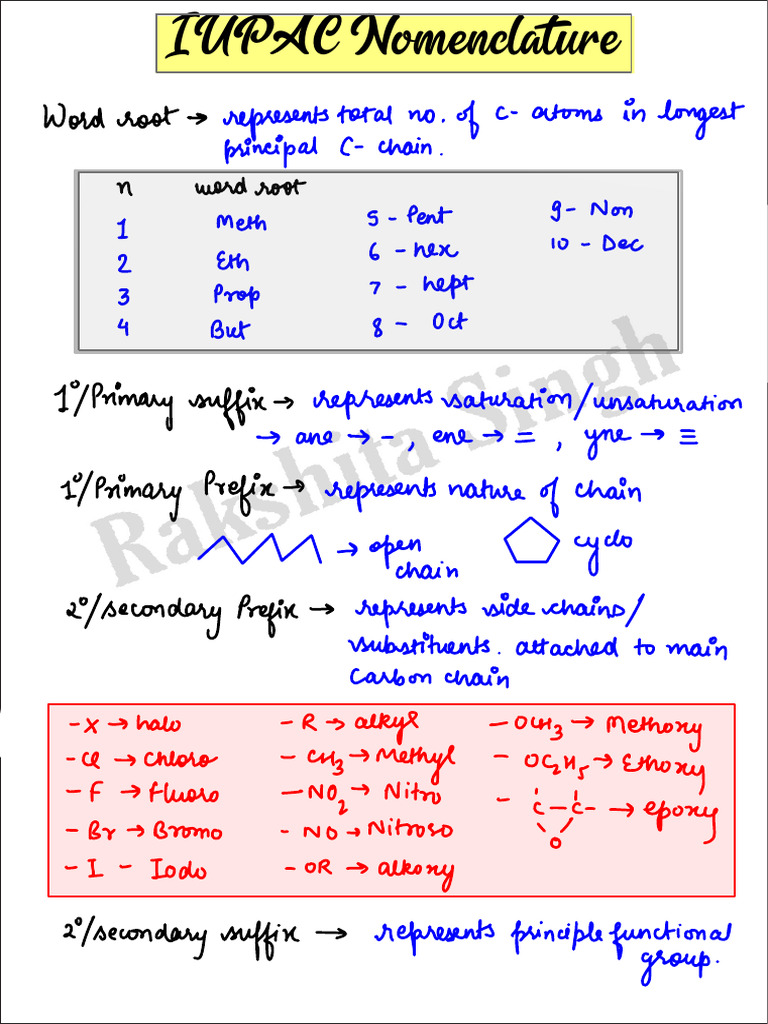 IUPAC Nomenclature
Word root → represents total no. of C-atoms in longest
principal C-chain.
n word root
1 Meth
2 Eth
3 Prop
4 But
5 - Pent
6 - hex
7 - hept
8 - Oct
9 - Non
10 - Dec
1°/Primary suffix → represents saturation/unsaturation
→ ane → - , ene → = , yne → ≡
1°/Primary Prefix → represents nature of chain
→ open
chain
cyclo
2°/secondary Prefix → represents side chains/
substituents. attached to main
Carbon chain
- X → halo
- Cl → Chloro
- F → Fluoro
- Br → Bromo
- I - Iodo
- R → alkyl
- CH3 → Methyl
- NO2 → Nitro
- NO → Nitroso
- OR → alkoxy
- OCH3 → Methoxy
- OC2H5 → Ethoxy
- C - C - → epoxy
O
2°/secondary suffix → represents principle functional
group.
Rakshita Singh